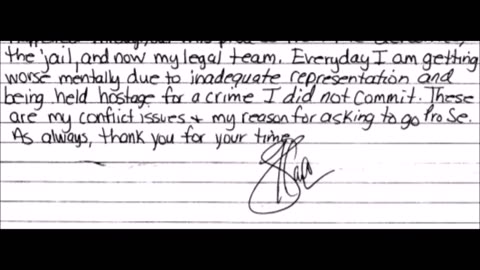 the jail, and now my legal team. Everyday I am getting
worse mentally due to inadequate representation and
being held hostage for a crime I did not commit. These
are my conflict issues + my reason for asking to go Pro Se.
As always, thank you for your time,